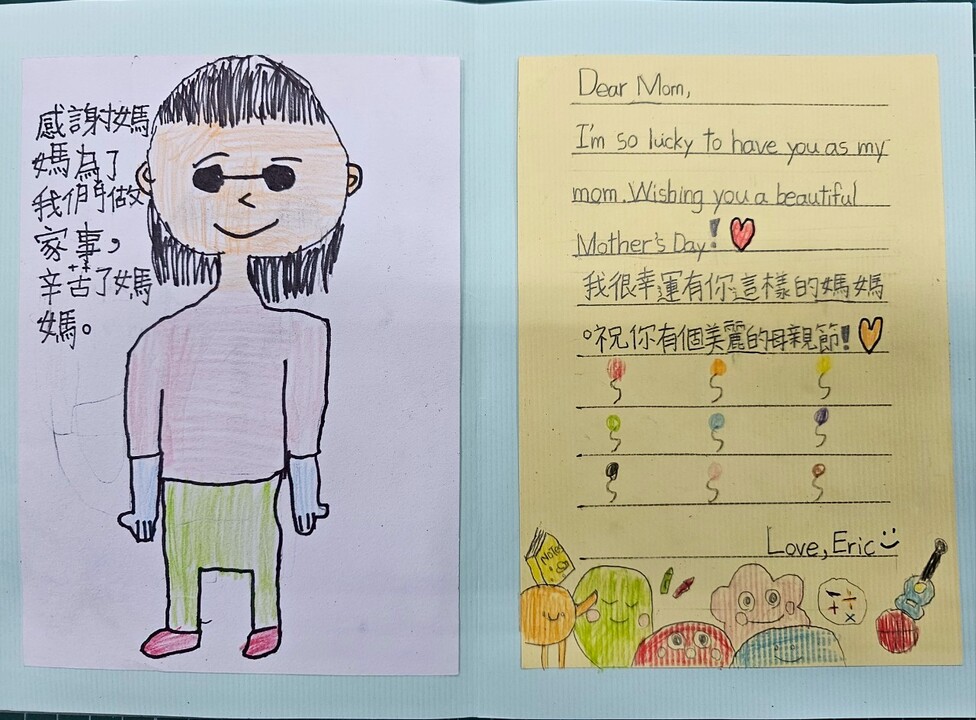 感謝媽
媽為了
我們做
家事，
辛苦了媽
媽。
Dear Mom,
I'm so lucky to have you as my
mom. Wishing you a beautiful
Mother's Day!
我很幸運有你這樣的媽媽
。祝你有個美麗的母親節!
Love, Eric
NOTES